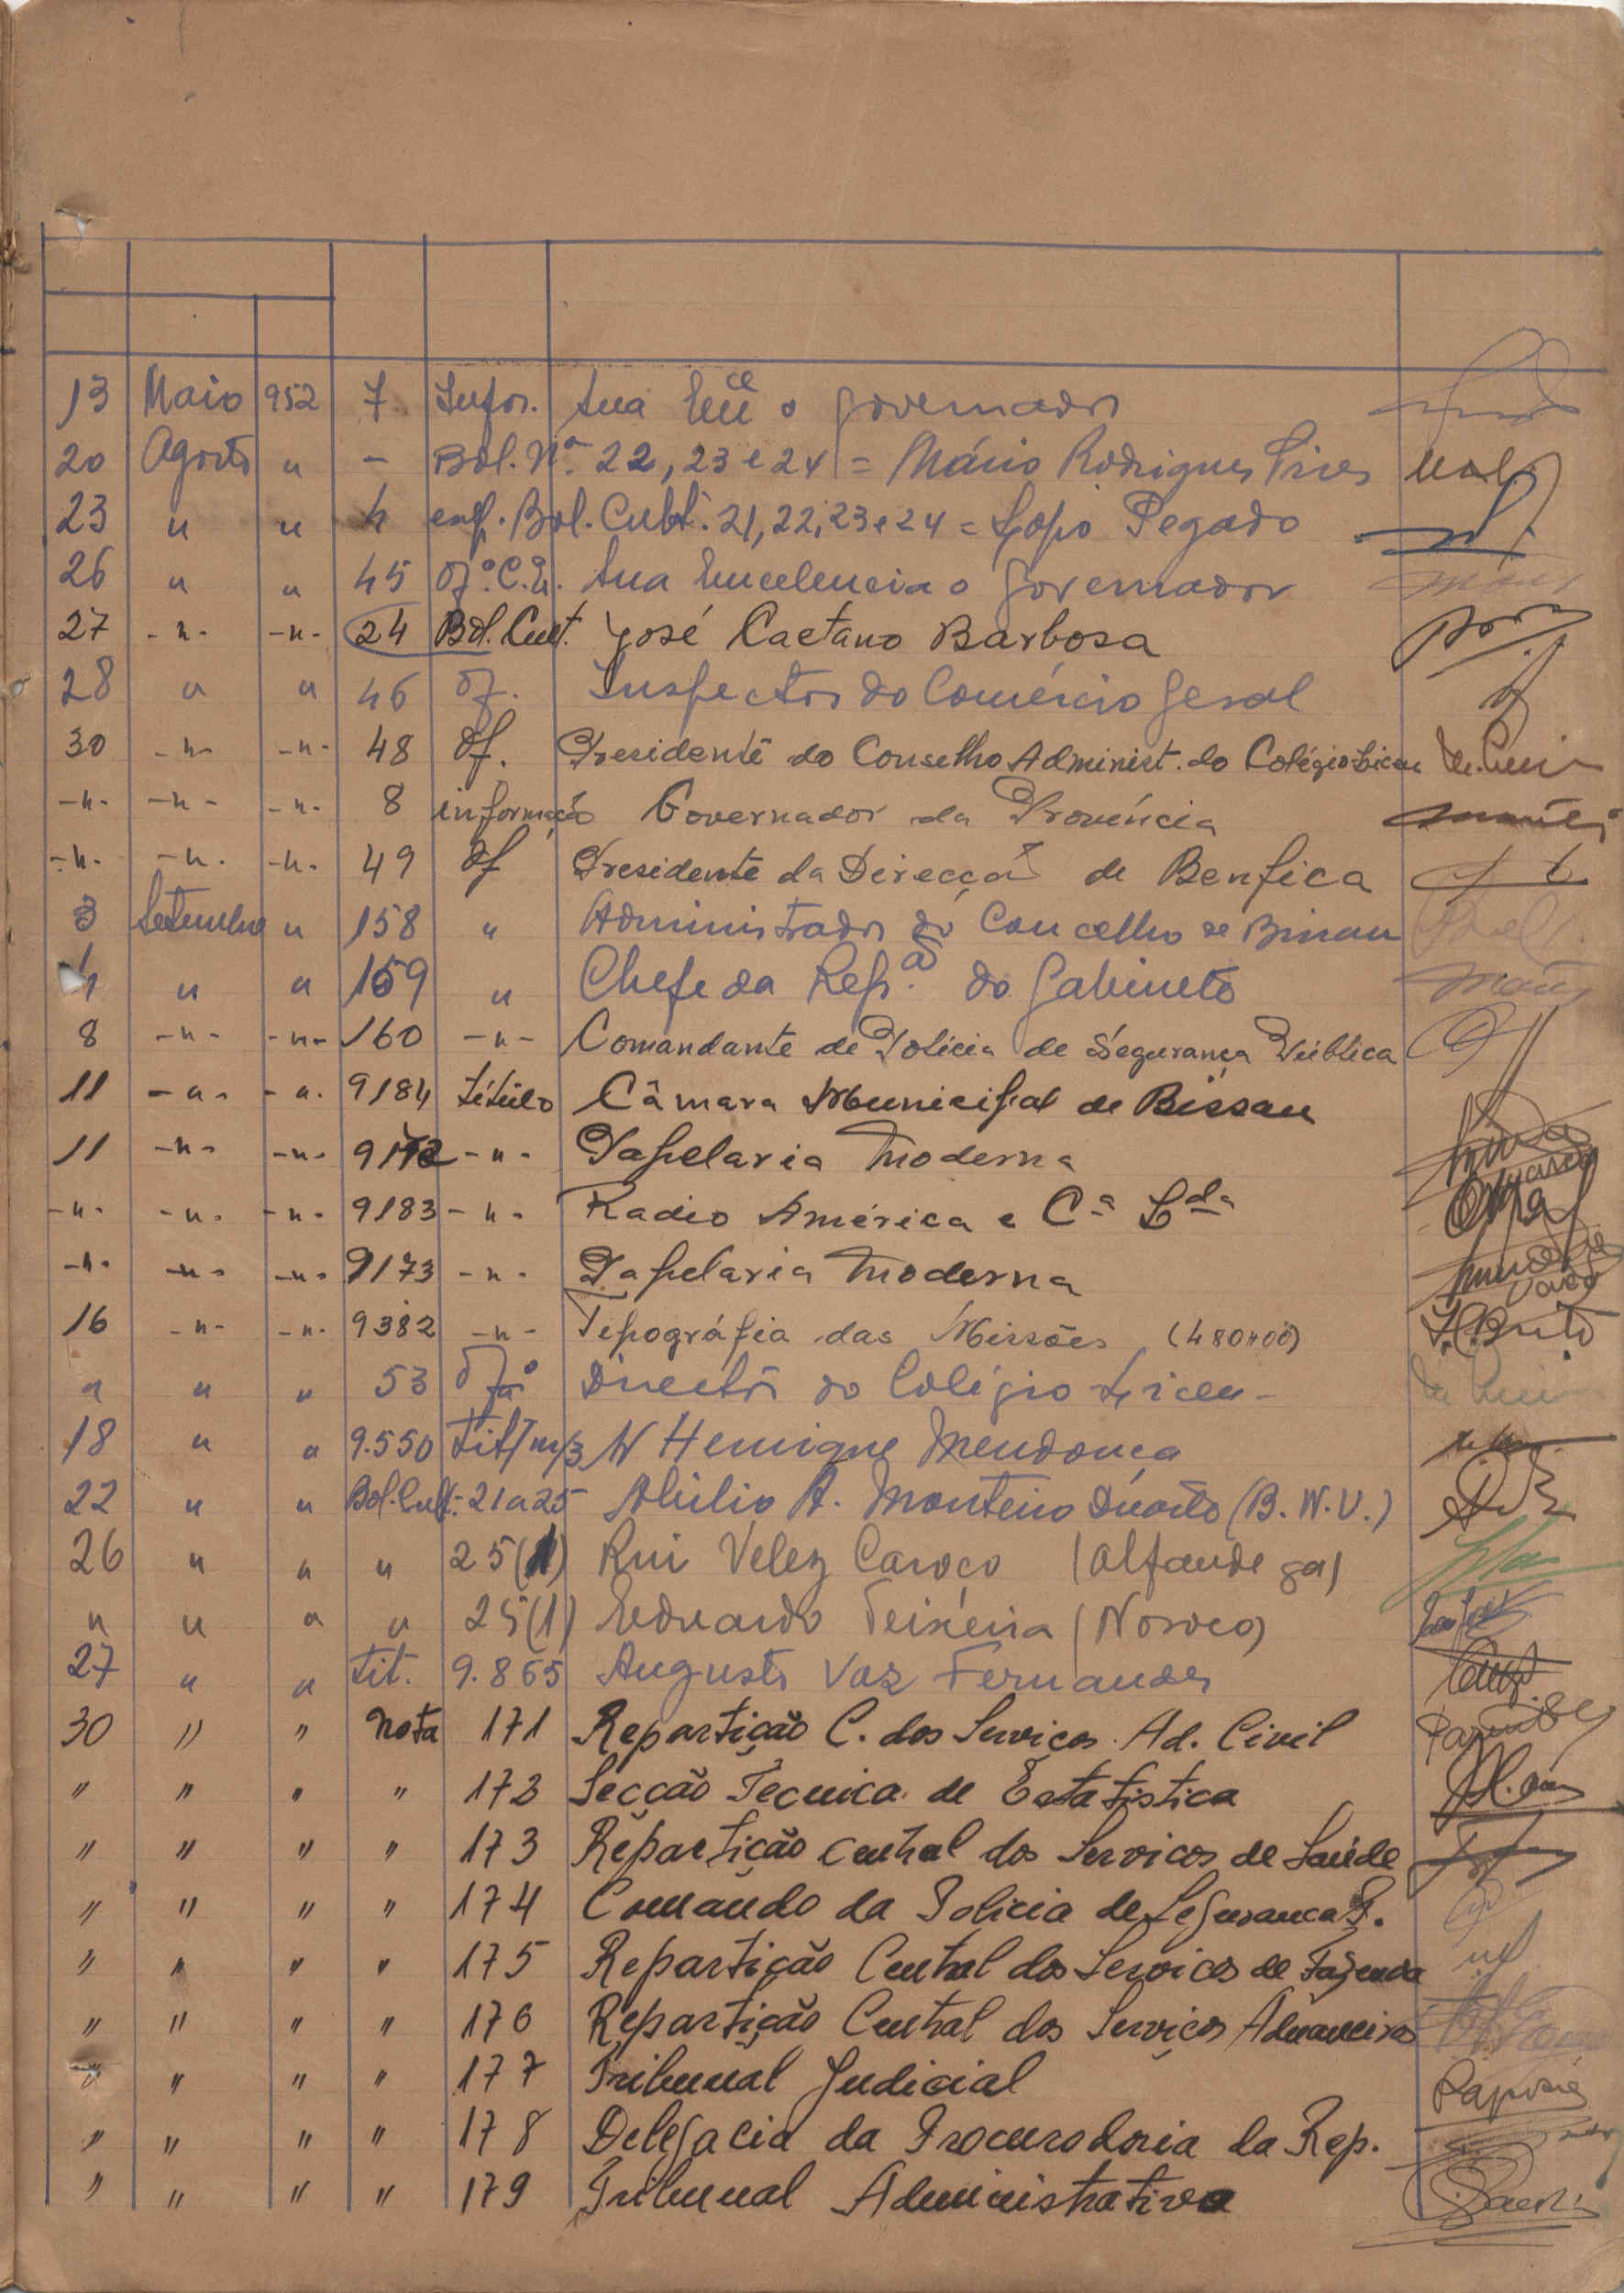 13 Maio 952 7 Infor. Sua Excia o Governador
20 Agosto " - Bol. Nº 22, 23 e 24 = Mário Rodrigues Pires
23 " " 4 exp. Bol. Cult. 21, 22, 23 e 24 = Lopo Pegado
26 " " 45 Of.º Sua Excelencia o Governador
27 -"- -"- 24 Bol. Cult. José Caetano Barbosa
28 " " 46 Of. Inspector do Comércio Geral
30 -"- -"- 48 Of. Presidente do Conselho Administ. do Colégio-Liceu
-"- -"- -"- 8 informação Governador da Província
-"- -"- -"- 49 Of Presidente da Direcção de Benfica
3 Setembro " 158 " Administrador do Concelho de Bissau
4 " " 159 " Chefe da Rep.ão do Gabinete
8 -"- -"- 160 -"- Comandante de Polícia de Segurança Pública
11 -"- -"- 9184 título Câmara Municipal de Bissau
11 -"- -"- -"- Papelaria Moderna
-"- -"- -"- 9183 -"- Radio América e Cª Lda
-"- -"- -"- 9173 -"- Papelaria Moderna
16 -"- -"- 9382 -"- Tipográfia das Missões (480"00) J. Brito
" " " 53 Director do Colégio Liceu -
18 " " 9.550 Tit/m/3 Henrique Mendonça
22 " " Bol. Cult. 21 a 25 Abilio A. Monteiro Duarte (B. N. U.)
26 " " " 25 (1) Rui Velez Caroço (Alfandega)
" " " " 25 (1) Eduardo Teixeira (Nosoco)
27 " " Tit. 9.865 Augusto Vaz Fernandes
30 " " Nota 171 Repartição C. dos Serviços Ad. Civil
" " " " 172 Secção Tecnica de Estatistica
" " " " 173 Repartição Central dos Serviços de Saúde
" " " " 174 Comando da Policia de Segurança P.
" " " " 175 Repartição Central dos Serviços de Fazenda
" " " " 176 Repartição Central dos Serviços Aduaneiros
" " " " 177 Tribunal Judicial
" " " " 178 Delegacia da Procuradoria da Rep.
" " " " 179 Tribunal Administrativo